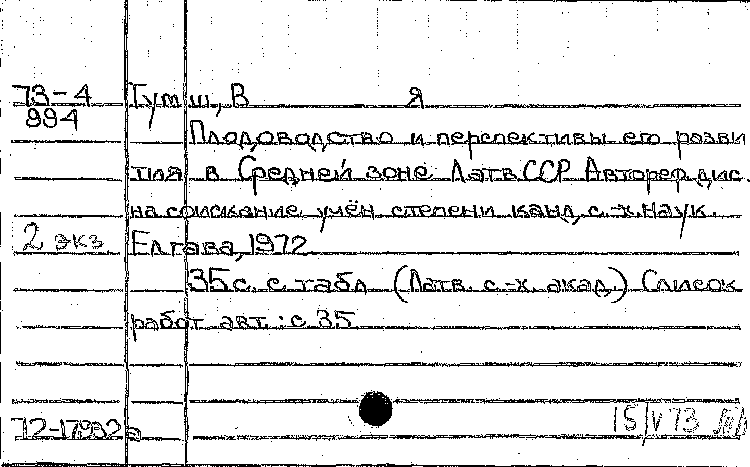 73-4
994
Гутш, В Я
Плодоводство и перспективы его разви
тия в Средней зоне Латв ССР Автореф дис.
на соискание учён степени канд. с.-х. наук.
2 экз Елгава, 1972
35 с. с табл (Латв. с.-х. акад.) Список
работ авт.: с 35
15/V 73